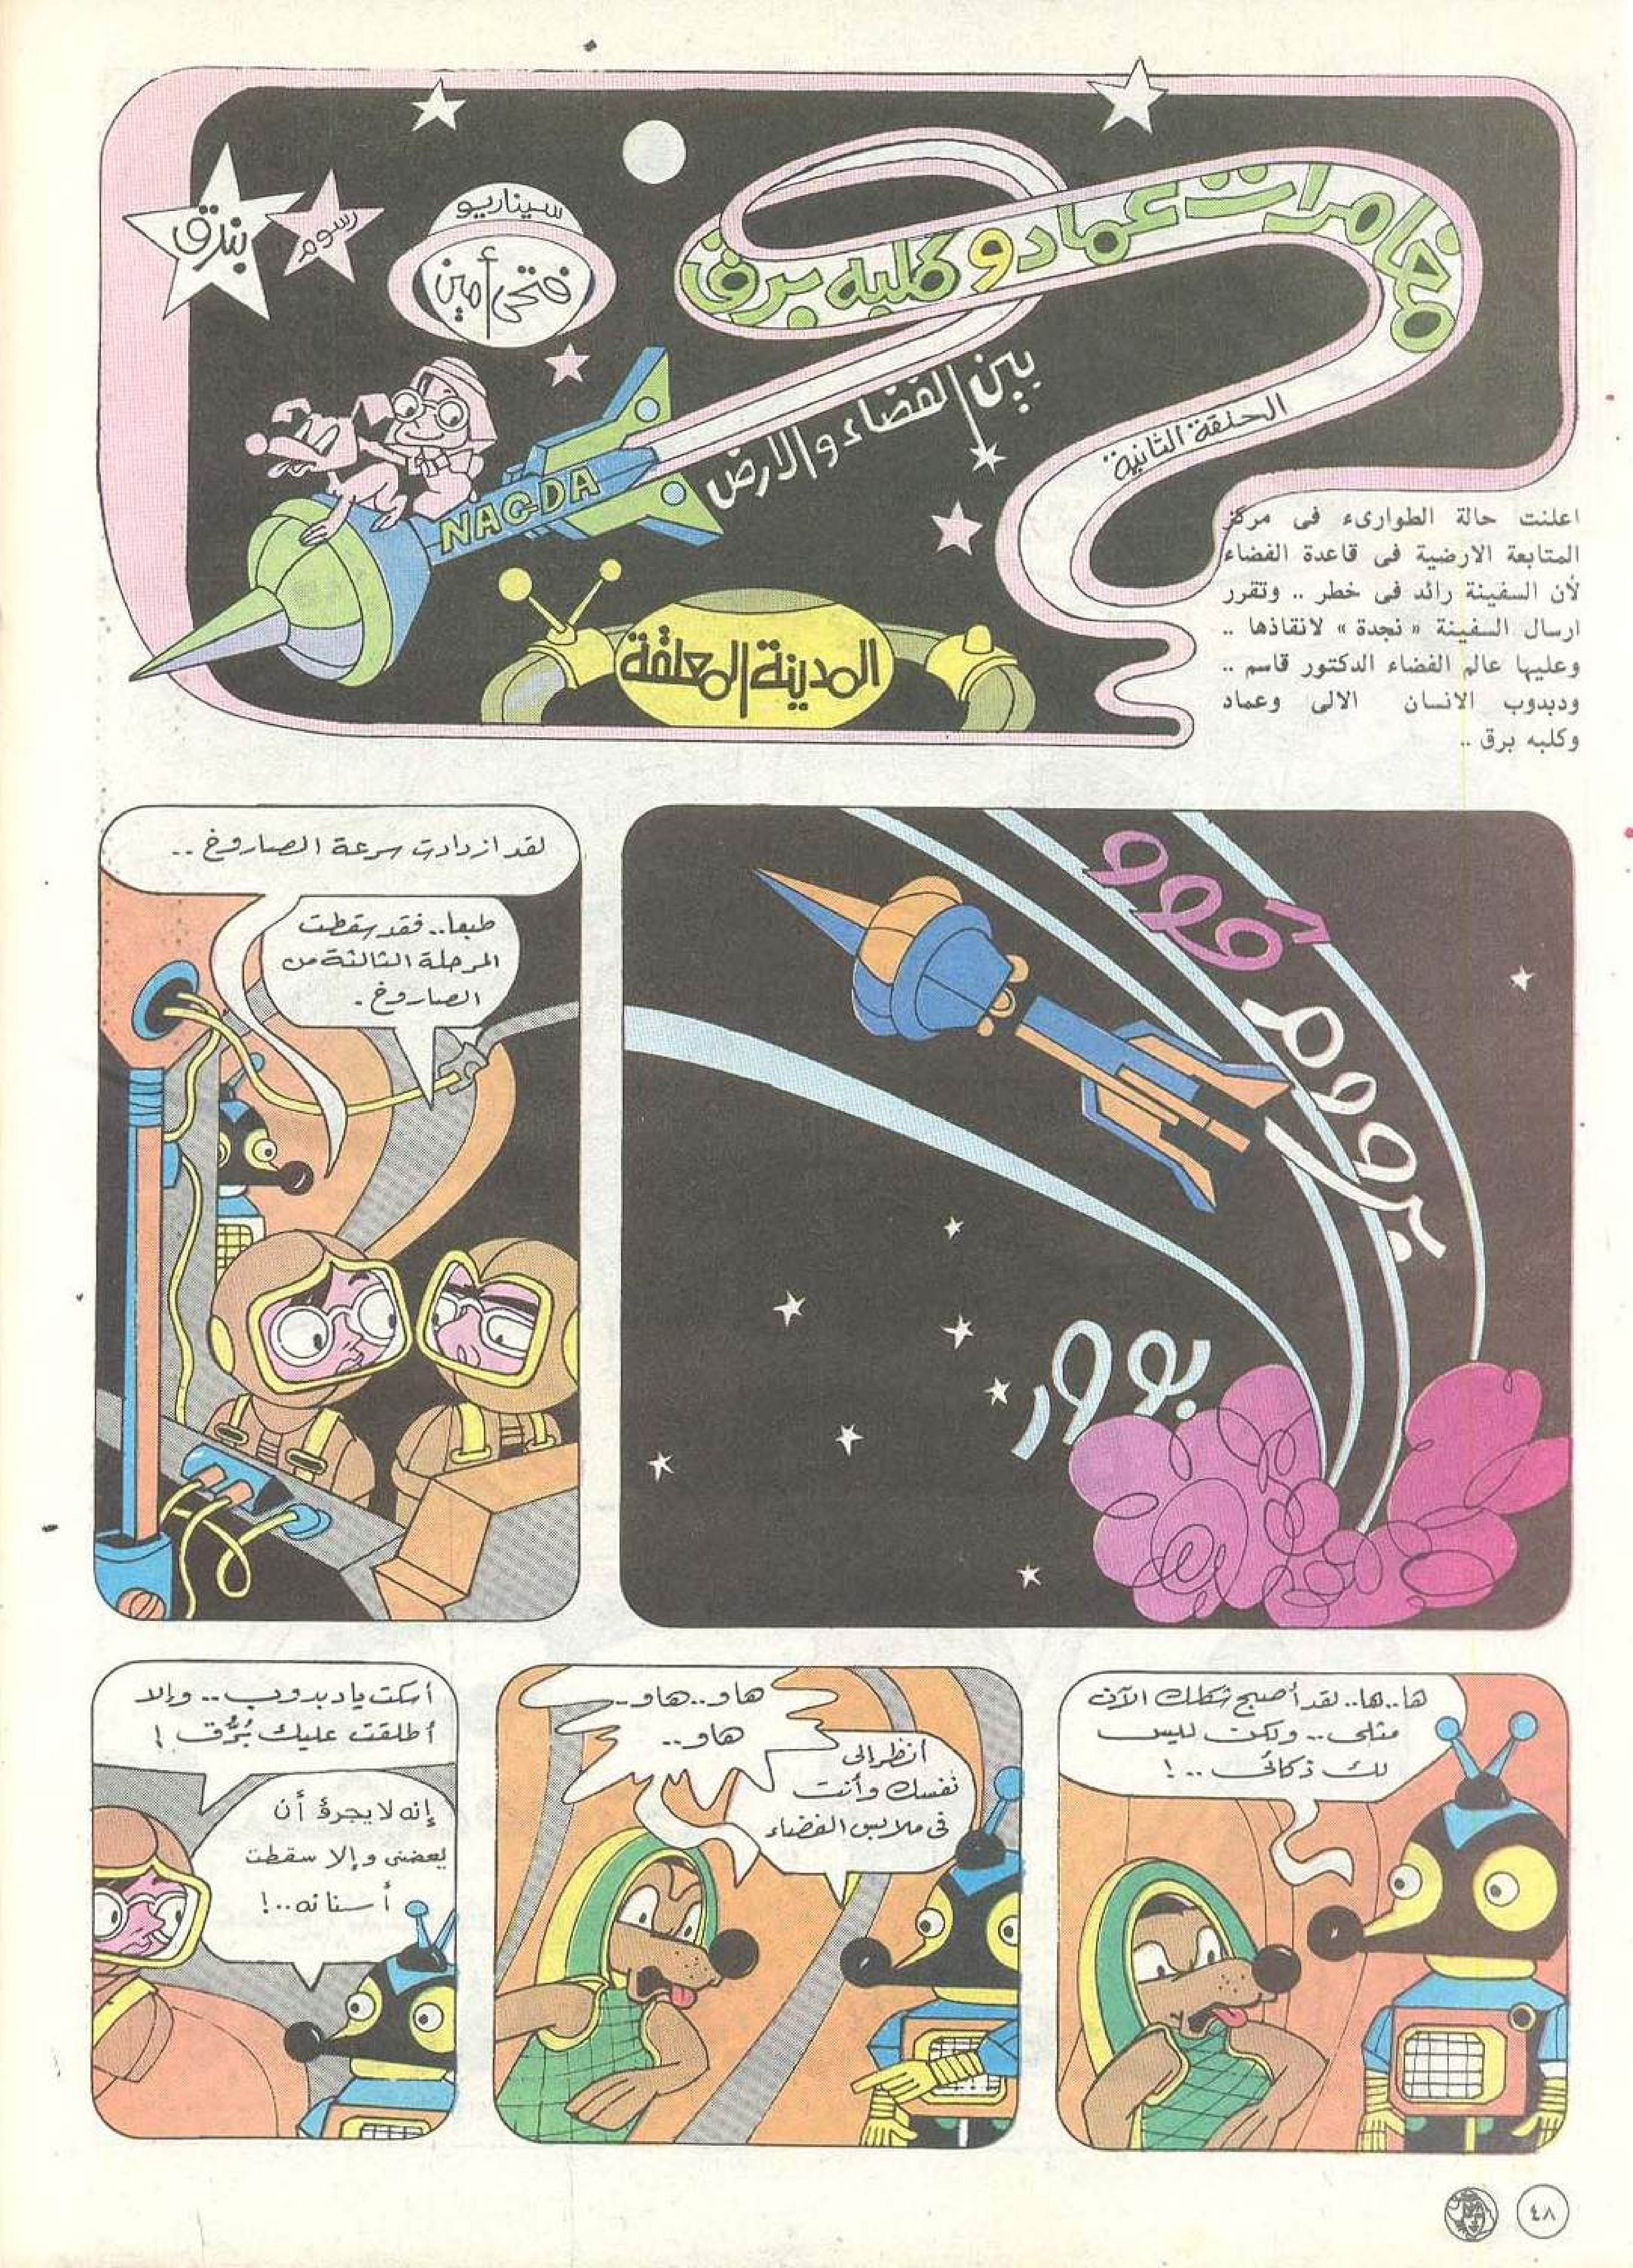 مغامرات عماد وكلبه برق
بين الفضاء والارض
الحلقة الثانية
سيناريو
فتحى أمين
رسوم
بندق
NAGDA
المدينة المعلقة
اعلنت حالة الطوارىء فى مركز
المتابعة الارضية فى قاعدة الفضاء
لأن السفينة رائد فى خطر .. وتقرر
ارسال السفينة « نجدة » لانقاذها ..
وعليها عالم الفضاء الدكتور قاسم ..
ودبدوب الانسان الالى وعماد
وكلبه برق ..
بروووم
بوور
لقد ازدادت سرعة الصاروخ ..
طبعا.. فقد سقطت
المرحلة الثالثة من
الصاروخ .
ها..ها.. لقد أصبح شكلك الآن
مثلى .. ولكن ليس
لك ذكائى ..!
هاو..هاو..
هاو..
أنظر إلى
نفسك وأنت
فى ملابس الفضاء
أسكت يا دبدوب .. وإلا
أطلقت عليك بُرق !
إنه لا يجرؤ أن
يعضنى وإلا سقطت
أسنانه ..!
٤٨